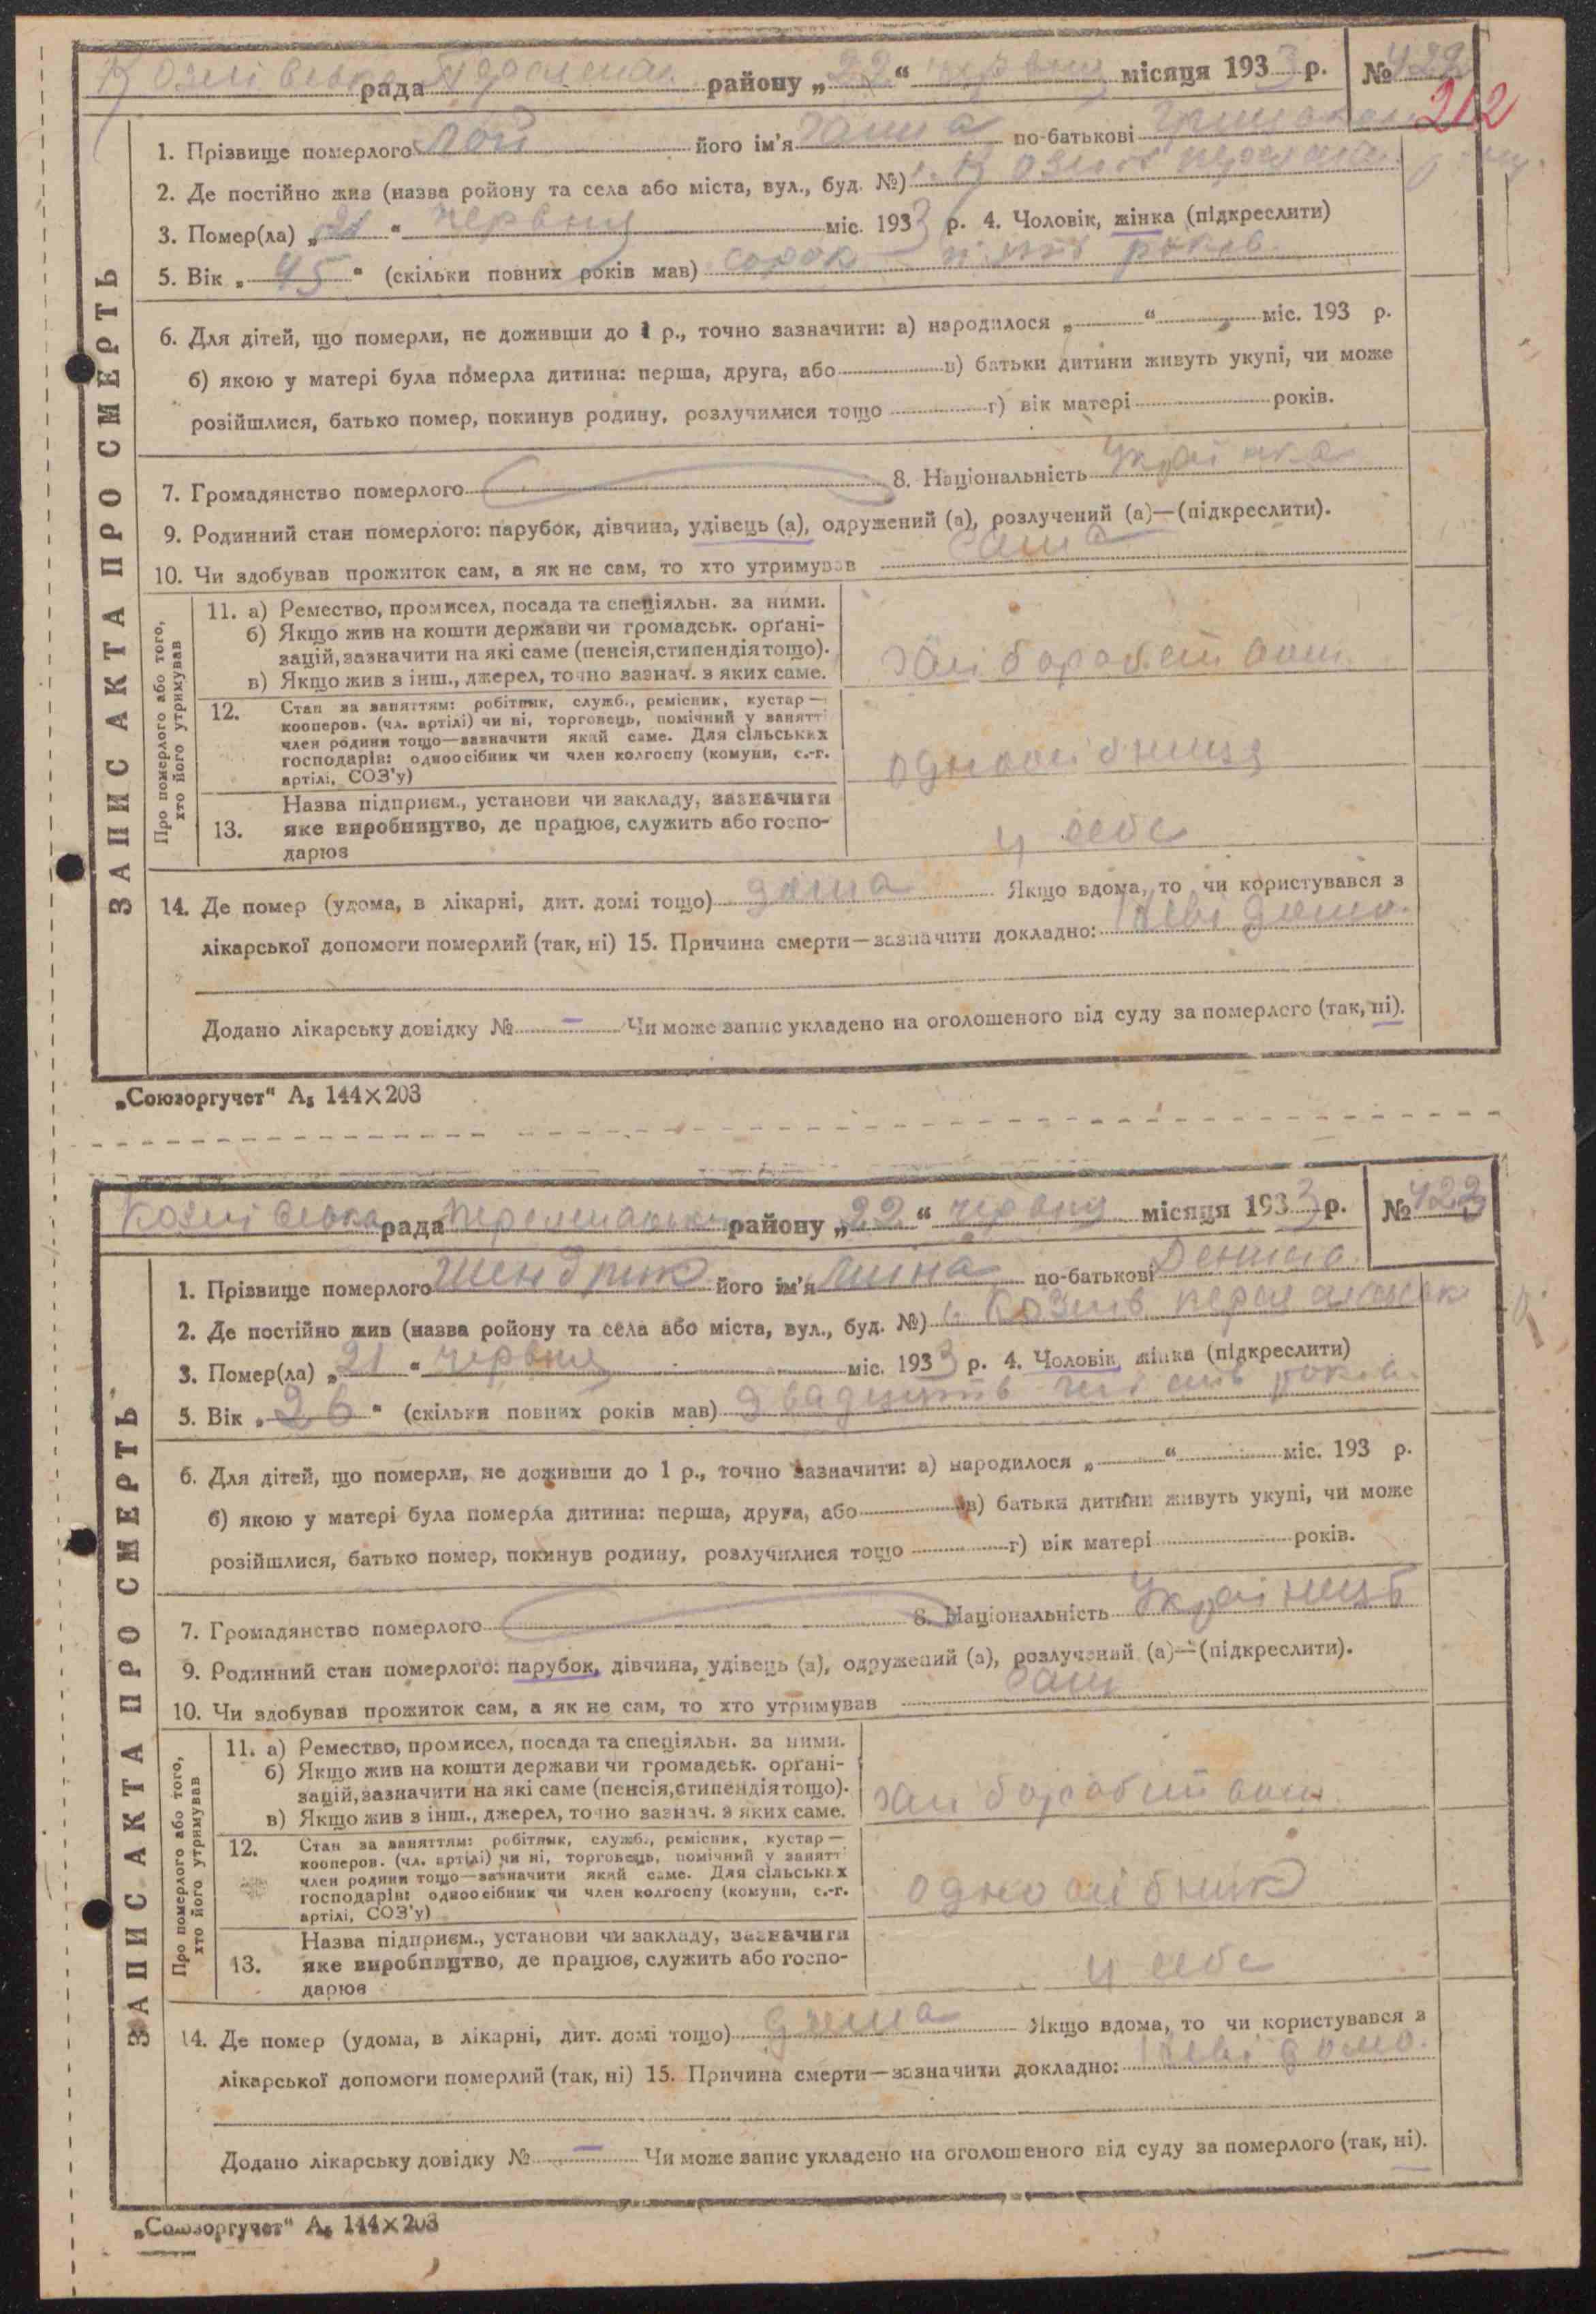 Козлівська рада району „22“ червня місяця 1933 р. №
212
1. Прізвище померлого його ім'я по-батькові
2. Де постійно жив (назва ройону та села або міста, вул., буд. №)
3. Помер(ла) „21“ червня міс. 1933 р. 4. Чоловік, жінка (підкреслити)
5. Вік „45“ (скільки повних років мав) сорок п'ять років
6. Для дітей, що померли, не доживши до 1 р., точно зазначити: а) народилося „ “ міс. 193 р.
б) якою у матері була померла дитина: перша, друга, або в) батьки дитини живуть укупі, чи може
розійшлися, батько помер, покинув родину, розлучилися тощо г) вік матері років.
7. Громадянство померлого 8. Національність Українка
9. Родинний стан померлого: парубок, дівчина, удівець (а), одружений (а), розлучений (а)—(підкреслити).
10. Чи здобував прожиток сам, а як не сам, то хто утримував сама
ЗАПИС АКТА ПРО СМЕРТЬ
Про померлого або того,
хто його утримував
11. а) Ремество, промисел, посада та спеціяльн. за ними.
б) Якщо жив на кошти держави чи громадськ. орґані-
зацій, зазначити на які саме (пенсія, стипендія тощо).
в) Якщо жив з інш., джерел, точно зазнач. з яких саме.
12. Стан за заняттям: робітник, служб., ремісник, кустар —
кооперов. (чл. артілі) чи ні, торговець, помічний у занятті
член родини тощо—зазначити який саме. Для сільських
господарів: одноосібник чи член колгоспу (комуни, с.-г.
артілі, СОЗ'у)
одноосібниця
13. Назва підприєм., установи чи закладу, зазначити
яке виробництво, де працює, служить або госпо-
дарює
у себе
14. Де помер (удома, в лікарні, дит. домі тощо) дома Якщо вдома, то чи користувався з
лікарської допомоги померлий (так, ні) 15. Причина смерти—зазначити докладно: Невідомо.
Додано лікарську довідку № – Чи може запис укладено на оголошеного від суду за померлого (так, ні).
„Союзоргучет“ А₅ 144×203
Козлівська рада району „22“ червня місяця 1933 р. № 423
1. Прізвище померлого Шендрик його ім'я по-батькові
2. Де постійно жив (назва ройону та села або міста, вул., буд. №) с. Козлів
3. Помер(ла) „21“ червня міс. 1933 р. 4. Чоловік, жінка (підкреслити)
5. Вік „26“ (скільки повних років мав) двадцять шість років
6. Для дітей, що померли, не доживши до 1 р., точно зазначити: а) народилося „ “ міс. 193 р.
б) якою у матері була померла дитина: перша, друга, або в) батьки дитини живуть укупі, чи може
розійшлися, батько помер, покинув родину, розлучилися тощо г) вік матері років.
7. Громадянство померлого 8. Національність Українець
9. Родинний стан померлого: парубок, дівчина, удівець (а), одружений (а), розлучений (а)—(підкреслити).
10. Чи здобував прожиток сам, а як не сам, то хто утримував сам
ЗАПИС АКТА ПРО СМЕРТЬ
Про померлого або того,
хто його утримував
11. а) Ремество, промисел, посада та спеціяльн. за ними.
б) Якщо жив на кошти держави чи громадськ. орґані-
зацій, зазначити на які саме (пенсія, стипендія тощо).
в) Якщо жив з інш., джерел, точно зазнач. з яких саме.
12. Стан за заняттям: робітник, служб., ремісник, кустар —
кооперов. (чл. артілі) чи ні, торговець, помічний у занятті
член родини тощо—зазначити який саме. Для сільських
господарів: одноосібник чи член колгоспу (комуни, с.-г.
артілі, СОЗ'у)
одноосібник
13. Назва підприєм., установи чи закладу, зазначити
яке виробництво, де працює, служить або госпо-
дарює
у себе
14. Де помер (удома, в лікарні, дит. домі тощо) дома Якщо вдома, то чи користувався з
лікарської допомоги померлий (так, ні) 15. Причина смерти—зазначити докладно: Невідомо.
Додано лікарську довідку № – Чи може запис укладено на оголошеного від суду за померлого (так, ні).
„Союзоргучет“ А₅ 144×203